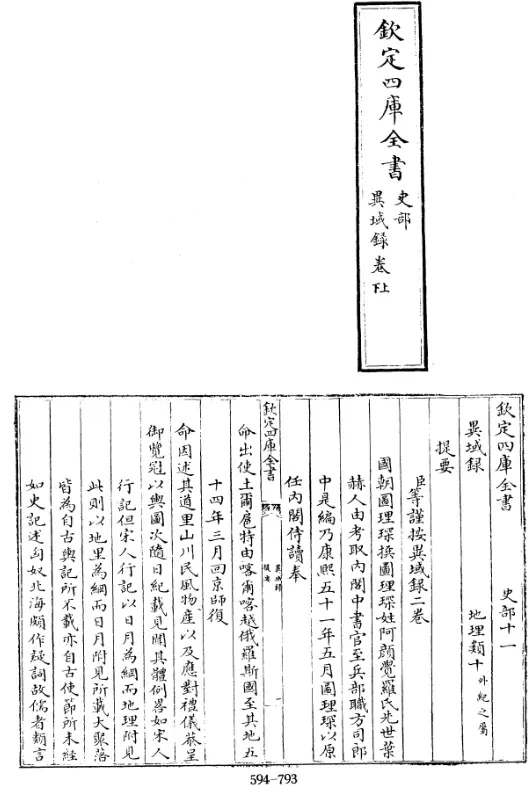 欽定四庫全書
史部
異域録卷上下
欽定四庫全書
史部十一
異域録
地理類十外紀之屬
提要
臣等謹按異域録二卷
國朝圖理琛撰圖理琛姓阿顔覺羅氏先世葉
赫人由考取内閣中書官至兵部職方司郎
中是編乃康熙五十一年五月圖理琛以原
任内閣侍讀奉
欽定四庫全書
異域録
提要
命出使土爾扈特由喀爾喀越俄羅斯國至其地五
十四年三月回京師復
命因述其道里山川民風物産以及應對禮儀恭呈
御覽冠以輿圖次随日紀載見聞其體例畧如宋人
行記但宋人行記以日月為綱而地理附見
此則以地里為綱而日月附見所載大聚落
皆為自古輿記所不載亦自古使節所未經
如史記述匈奴北海頗作疑詞故儒者類言
594-793